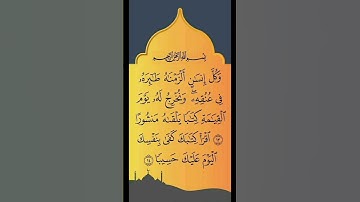 بِسْمِ اللَّهِ الرَّحْمَٰنِ الرَّحِيمِ
وَكُلَّ إِنسَٰنٍ أَلْزَمْنَٰهُ طَٰٓئِرَهُۥ
فِى عُنُقِهِۦ ۖ وَنُخْرِجُ لَهُۥ يَوْمَ
ٱلْقِيَٰمَةِ كِتَٰبًا يَلْقَىٰهُ مَنشُورًا
١٣ ٱقْرَأْ كِتَٰبَكَ كَفَىٰ بِنَفْسِكَ
ٱلْيَوْمَ عَلَيْكَ حَسِيبًا ١٤